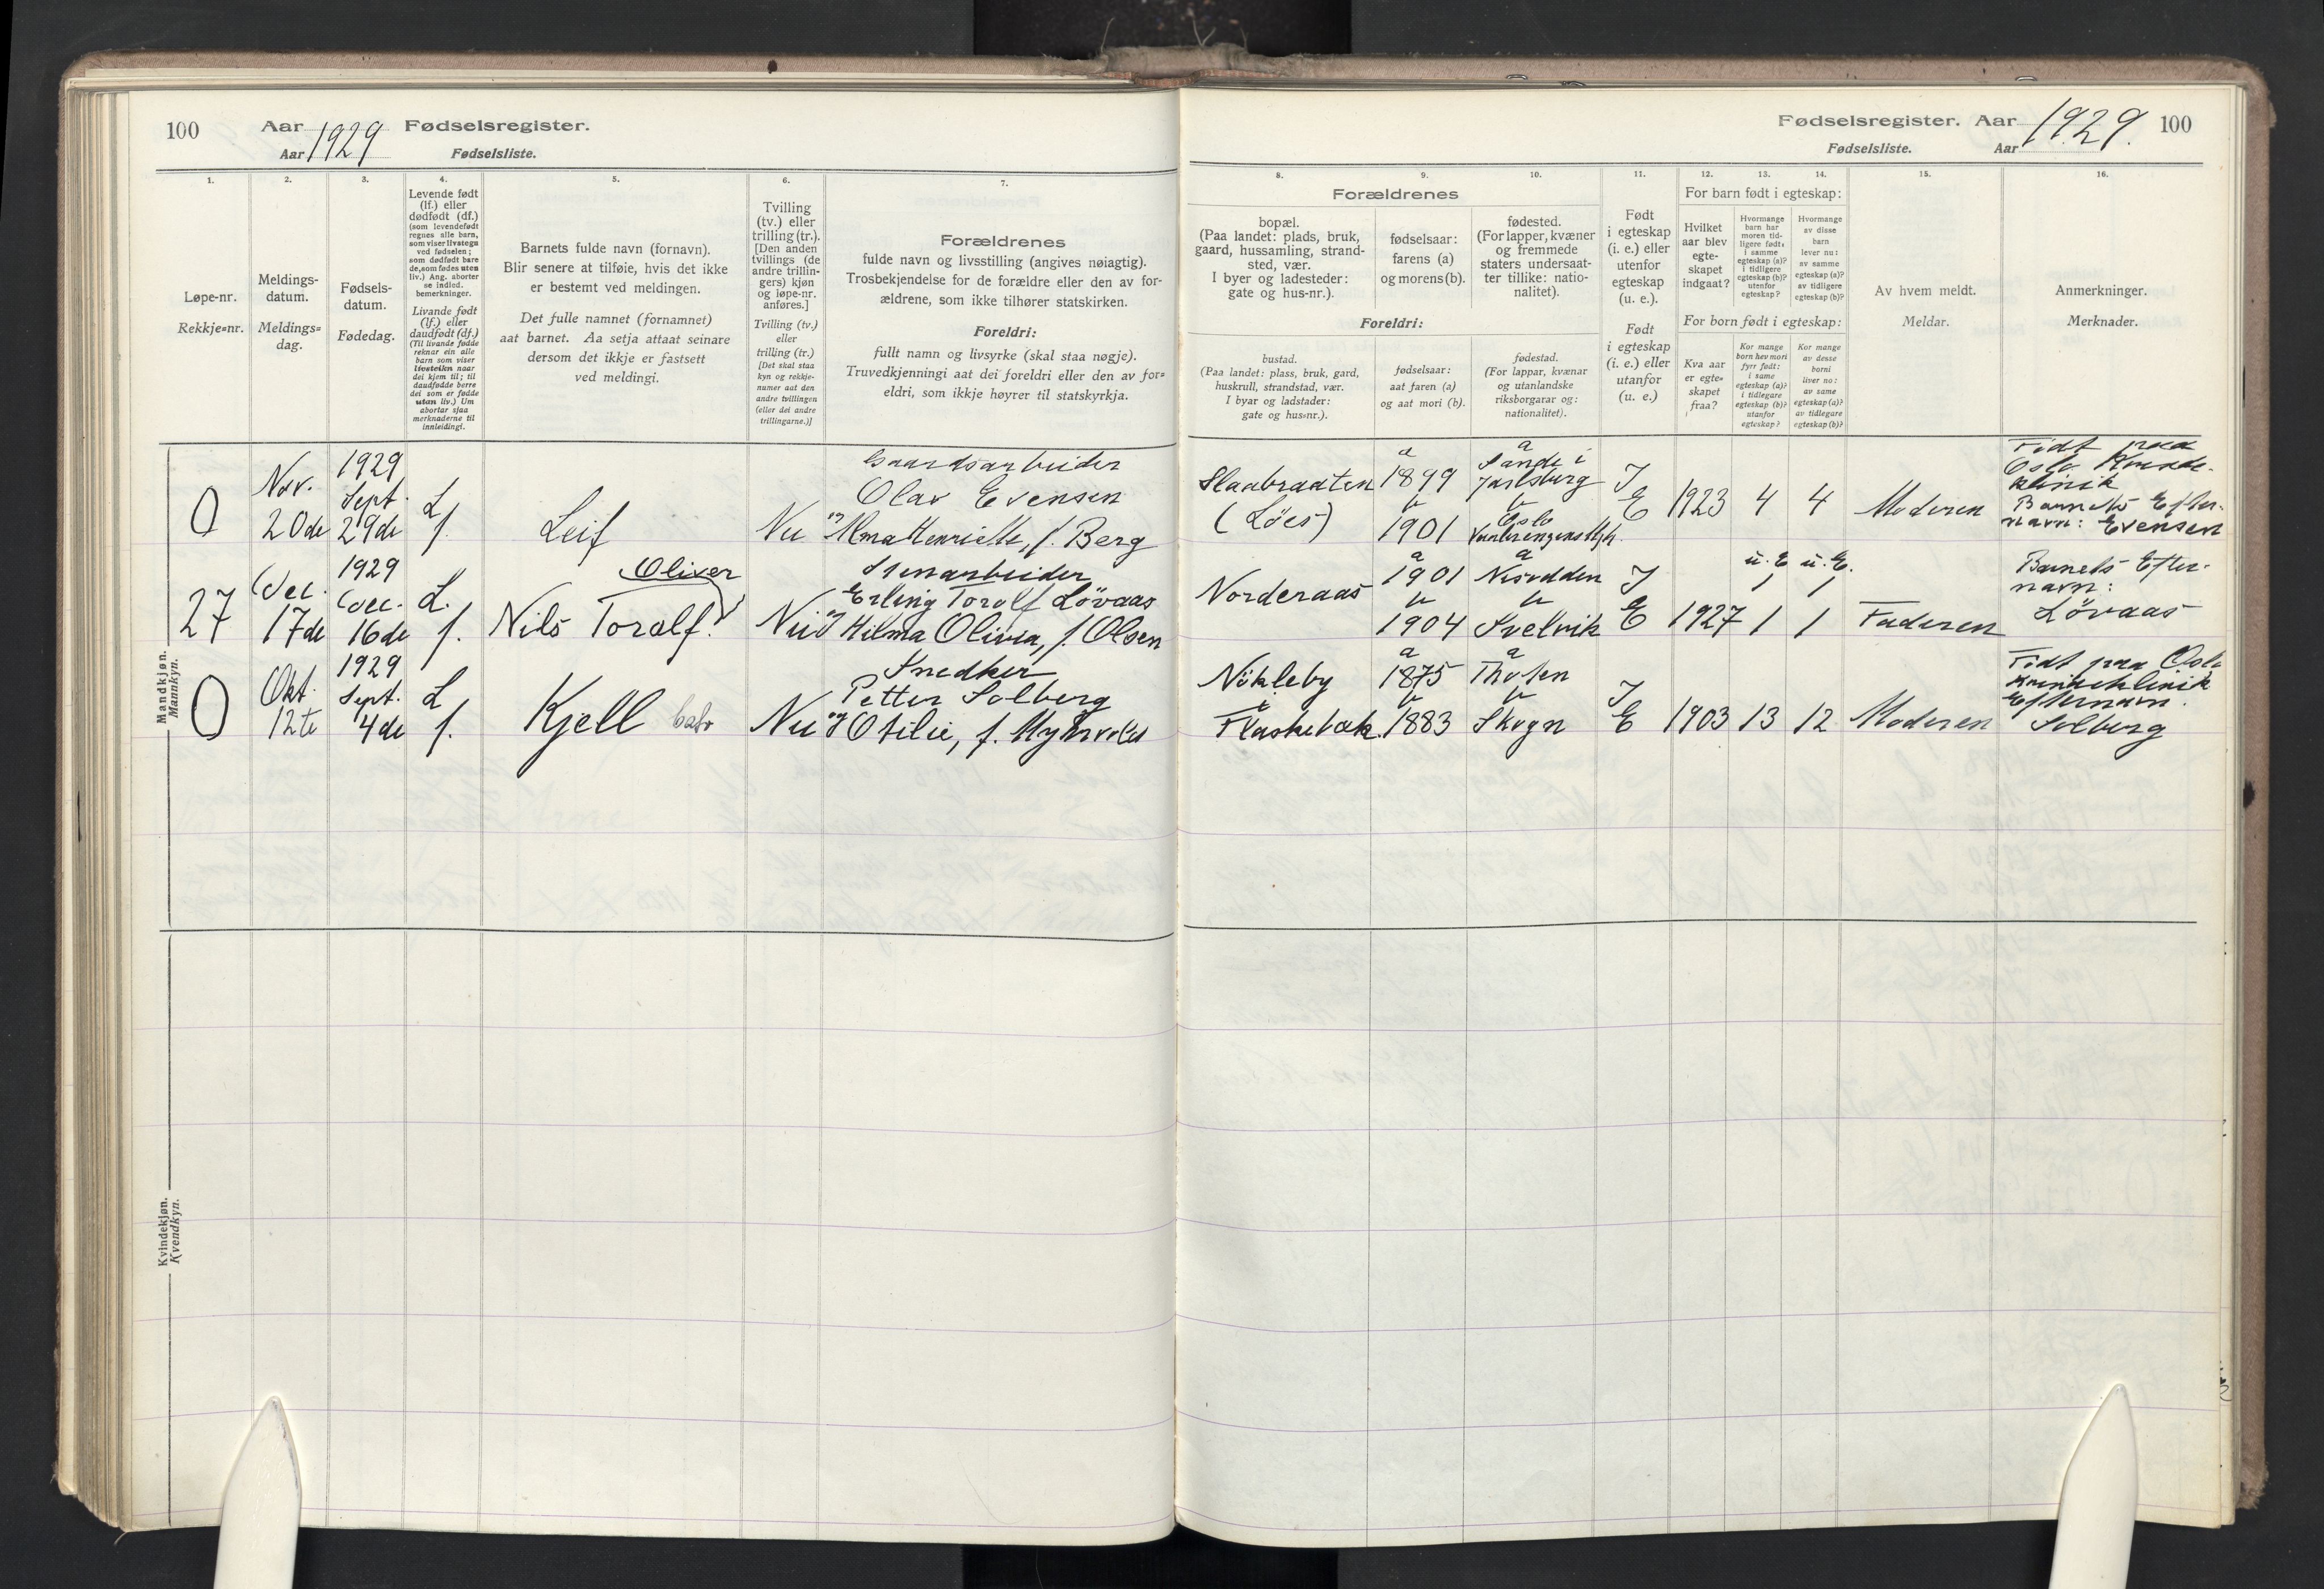 100
Aar 1929 Fødselsregister.
Aar Fødselsliste.
1. 2. 3. 4. 5. 6. 7.
Løpe-nr.
Rekkje=nr.
Meldings-
datum.
Meldings=
dag.
Fødsels-
datum.
Fødedag.
Levende født
(lf.) eller
dødfødt (df.)
(som levendefødt
regnes alle barn,
som viser livstegn
ved fødselen;
som dødfødt bare
de, som fødes uten
liv.) Ang. aborter
se indled.
bemerkninger.
Livande født
(lf.) eller
daudfødt (df.)
(Til livande fødde
reknar ein alle
barn som viser
livsteikn naar
dei kjem til; til
daudfødde berre
dei som er fødde
utan liv.) Um
abortar sjaa
merknaderne til
innleidingi.
Barnets fulde navn (fornavn).
Blir senere at tilføie, hvis det ikke
er bestemt ved meldingen.
Det fulle namnet (fornamnet)
aat barnet. Aa setja attaat seinare
dersom det ikkje er fastsett
ved meldingi.
Tvilling
(tv.) eller
trilling (tr.).
[Den anden
tvillings (de
andre trillin-
gers) kjøn
og løpe-nr.
anføres.]
Tvilling (tv.)
eller
trilling (tr.)
[Det skal staa
kyn og rekkje-
numer aat den
andre tvillingen
(eller dei andre
trillingarne.)]
Forældrenes
fulde navn og livsstilling (angives nøiagtig).
Trosbekjendelse for de forældre eller den av for-
ældrene, som ikke tilhører statskirken.
Foreldri:
fullt namn og livsyrke (skal staa nøgje).
Truvedkjenningi aat dei foreldri eller den av for=
eldri, som ikkje høyrer til statskyrkja.
Mandkjøn.
Mannkyn.
0
Nov.
20de
1929
Sept.
29de
L
f.
Leif
Nei
Gaardsarbeider
Olav Evensen
og Alma Henriette, f. Berg
27
Dec.
17de
1929
Dec.
16de
L.
f.
Oliver
Nils Toralf.
Nei
Erling Toralf Lövaas
og Hilma Olivia, f. Olsen
0
Okt.
12te
1929
Sept.
4de
L
f.
Kjell
Nei
Snedker
Petter Solberg
og Otilie, f. Myhrvold
Kvindekjøn.
Kvendkyn.
Fødselsregister. Aar 1929. 100
Fødselsliste. Aar
8. 9. 10. 11. 12. 13. 14. 15. 16.
Forældrenes
bopæl.
(Paa landet: plads, bruk,
gaard, hussamling, strand-
sted, vær.
I byer og ladesteder:
gate og hus-nr.).
fødselsaar:
farens (a)
og morens (b).
fødested.
(For lapper, kvæner
og fremmede
staters undersaat-
ter tillike: natio-
nalitet).
Foreldri:
bustad.
(Paa landet: plass, bruk, gard,
huskrull, strandstad, vær.
I byar og ladstader:
gate og hus=nr.).
fødselsaar:
aat faren (a)
og aat mori (b).
fødestad.
(For lappar, kvænar
og utanlandske
riksborgarar og:
nationalitet).
Født
i egteskap
(i. e.) eller
utenfor
egteskap
(u. e.).
Født
i egteskap
(i. e.) eller
utanfor
(u. e.)
For barn født i egteskap:
Hvilket
aar blev
egte-
skapet
indgaat?
Hvormange
barn har
moren tid-
ligere født:
i samme
egteskap (a)?
i tidligere
egteskap (b)?
utenfor
egteskap?
Hvormange
av disse
barn
lever nu:
av samme
egteskap (a)?
av tidligere
egteskap (b)?
For born født i egteskap:
Kva aar
er egte=
skapet
fraa?
Kor mange
born hev mori
fyrr født:
i same
egteskap (a)?
i tidlegare
egteskap (b)?
utanfor
egteskap?
Kor mange
av desse
borni
liver no:
av same
egteskap (a)?
av tidlegare
egteskap (b)?
Av hvem meldt.
Meldar.
Anmerkninger.
Merknader.
Slaabraaten
(Löes)
a
1899
b
1901
a
Sande i
Jarlsberg
b
Oslo
I
E
1923 4 4 Moderen
Födt paa
Oslo Kvinde-
klinik
Barnets Efter-
navn: Evensen
Norderaas
a
1901
b
1904
a
b
Svelvik
I
E
1927
u. E. u. E.
1 1
1 1
Faderen
Barnets Efter-
navn:
Lövaas
Nökleby
Flaskebæk.
a
1875
b
1883
a
b
Skogn
I
E
1903 13 12 Moderen
Födt paa Oslo
Kvindeklinik
Efternavn.
Solberg